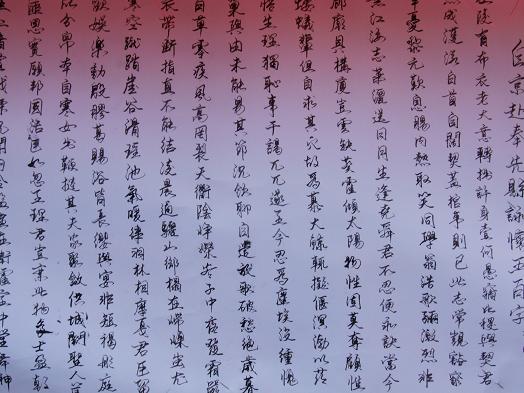 自京赴奉先縣詠懷五百字
陵有布衣老大意轉拙許身一何愚竊比稷與契居
然成濩落白首甘契闊蓋棺事則已此志常覬豁窮
年憂黎元歎息腸內熱取笑同學翁浩歌彌激烈非
無江海志瀟灑送日月生逢堯舜君不忍便永訣當今
廊廟具構廈豈云缺葵藿傾太陽物性固莫奪顧惟
螻蟻輩但自求其穴胡為慕大鯨輒擬偃溟渤以茲
悟生理獨恥事干謁兀兀遂至今忍為塵埃沒終愧
巢與由未能易其節沉飲聊自遣放歌破愁絕歲暮
百草零疾風高岡裂天衢陰崢嶸客子中夜發霜嚴
衣帶斷指直不能結凌晨過驪山御榻在嵽嵲蚩尤
寒空蹴踏崖谷滑瑤池氣鬱律羽林相摩戛君臣留
歡娛樂動殷膠葛賜浴皆長纓與宴非短褐彤庭
所分帛本自寒女出鞭撻其夫家聚斂供城闕聖人筐
篚恩實願邦國活臣如忽至理君豈棄此物多士盈朝
仁者宜戰慄況聞內金盤盡在衛霍室中堂舞神